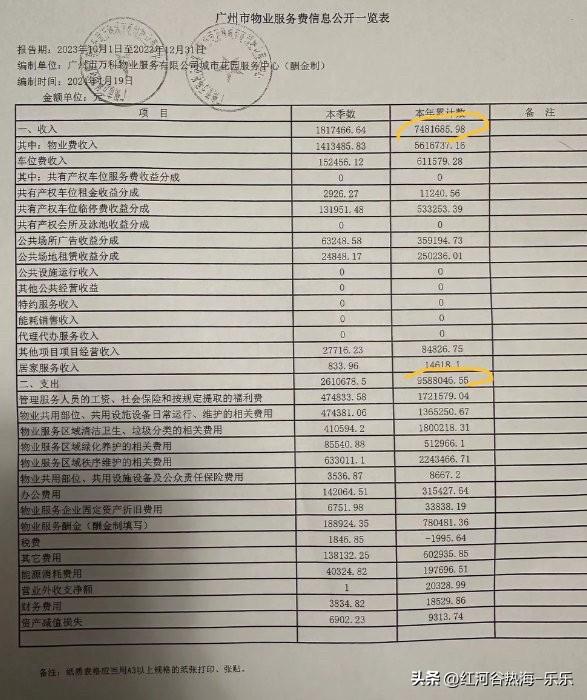 广州市物业服务费信息公开一览表
报告期：2023年10月1日至2023年12月31日
编制单位：广州市万科物业服务有限公司城市花园服务中心（酬金制）
编制时间：2024年1月19日
金额单位：元
项 目 本季数 本年累计数 备 注
一、收入 1817466.64 7481685.98
其中：物业费收入 1413485.83 5616737.16
车位费收入 152456.12 611579.28
其中：共有产权车位服务费收益分成 0 0
共有产权车位租金收益分成 2926.27 11240.56
共有产权车位临停费收益分成 131951.48 533253.39
共有产权会所及泳池收益分成 0 0
公共场所广告收益分成 63248.58 359194.73
公共场地租赁收益分成 24848.17 250236.01
公共设施运行收入 0 0
其他公共经营收益 0 0
特约服务收入 0 0
能耗销售收入 0 0
代理代办服务收入 0 0
其他项目项目经营收入 27716.23 84826.75
居家服务收入 833.96 14618.1
二、支出 2610678.5 9588046.55
管理服务人员的工资、社会保险和按规定提取的福利费 474833.58 1721579.04
物业共用部位、共用设施设备日常运行、维护的相关费用 474381.06 1365250.67
物业服务区域清洁卫生、垃圾分类的相关费用 410594.2 1800218.31
物业服务区域绿化养护的相关费用 85540.88 512966.1
物业服务区域秩序维护的相关费用 633011.1 2243466.71
物业共用部位、共用设施设备及公众责任保险费用 3536.87 8667.2
办公费用 142064.51 315427.64
物业服务企业固定资产折旧费用 6751.98 33838.19
物业服务酬金（酬金制填写） 188924.35 780481.36
税费 1846.85 -1995.64
其它费用 138132.25 602935.85
能源消耗费用 40324.82 197696.51
营业外收支净额 1 20328.99
财务费用 3834.82 18529.86
资产减值损失 6902.23 9313.74
备注：纸质表格应当用A3以上规格的纸张打印、张贴。
头条 @红河谷热海-乐乐